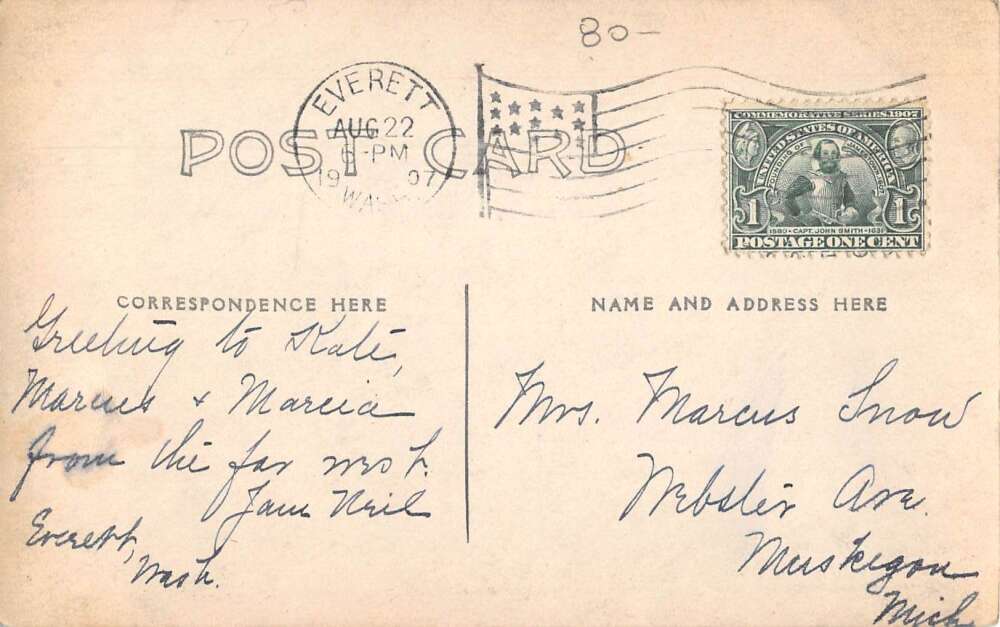 80-
EVERETT
AUG 22
6-PM
1907
WASH.
POST CARD
COMMEMORATIVE SERIES 1907
UNITED STATES OF AMERICA
FOUNDING OF JAMESTOWN 1607
1 1
1580 • CAPT. JOHN SMITH • 1631
POSTAGE ONE CENT
CORRESPONDENCE HERE
Greeting to Kate,
Marcus & Marcia
from the far west.
Jam Neil
Everett,
Wash.
NAME AND ADDRESS HERE
Mrs. Marcus Snow
Webster Ave.
Muskegon
Mich